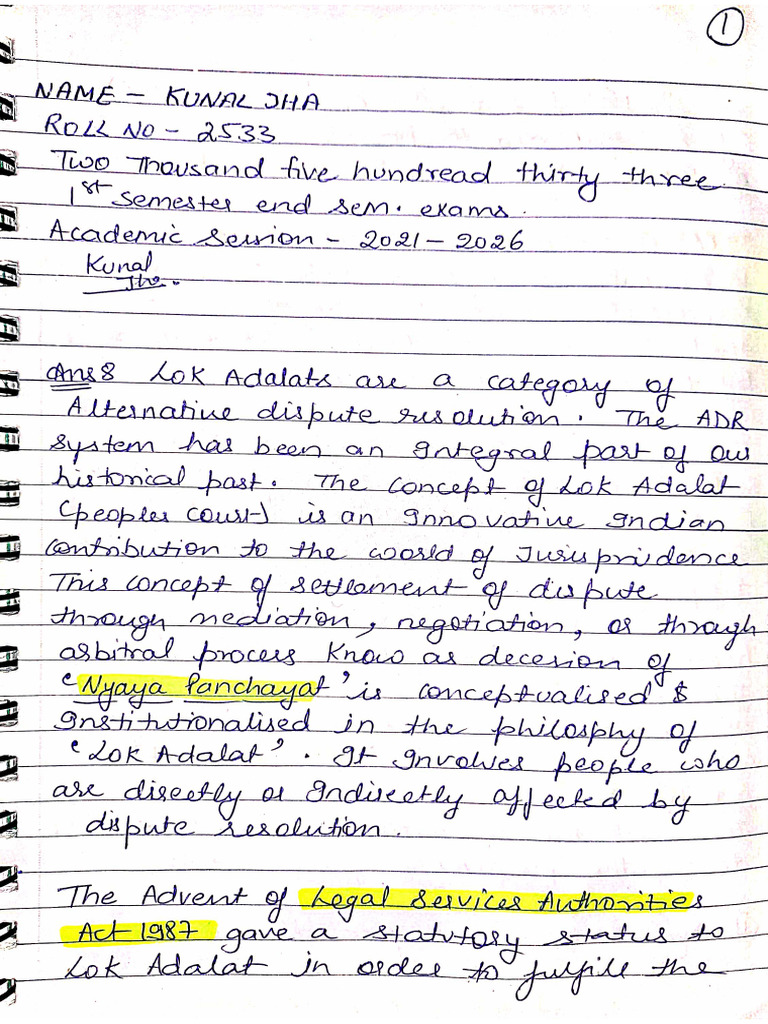 1
NAME - KUNAL JHA
ROLL NO - 2533
Two Thousand five hundread thirty three
1st semester end sem. exams.
Academic Session - 2021 - 2026
Kunal
Jha.
Ans 8 Lok Adalats are a category of
Alternative dispute resolution. The ADR
system has been an Integral part of our
historical past. The concept of Lok Adalat
(peoples court) is an Innovative Indian
contribution to the world of Jurisprudence
This concept of settlement of dispute
through mediation, negotiation, or through
arbitral process know as decesion of
'Nyaya Panchayat' is conceptualised &
Institutionalised in the philosphy of
'Lok Adalat'. It Involves people who
are directly or Indirectly affected by
dispute resolution.
The Advent of Legal Services Authorities
Act 1987 gave a statutory status to
Lok Adalat in order to fulfill the